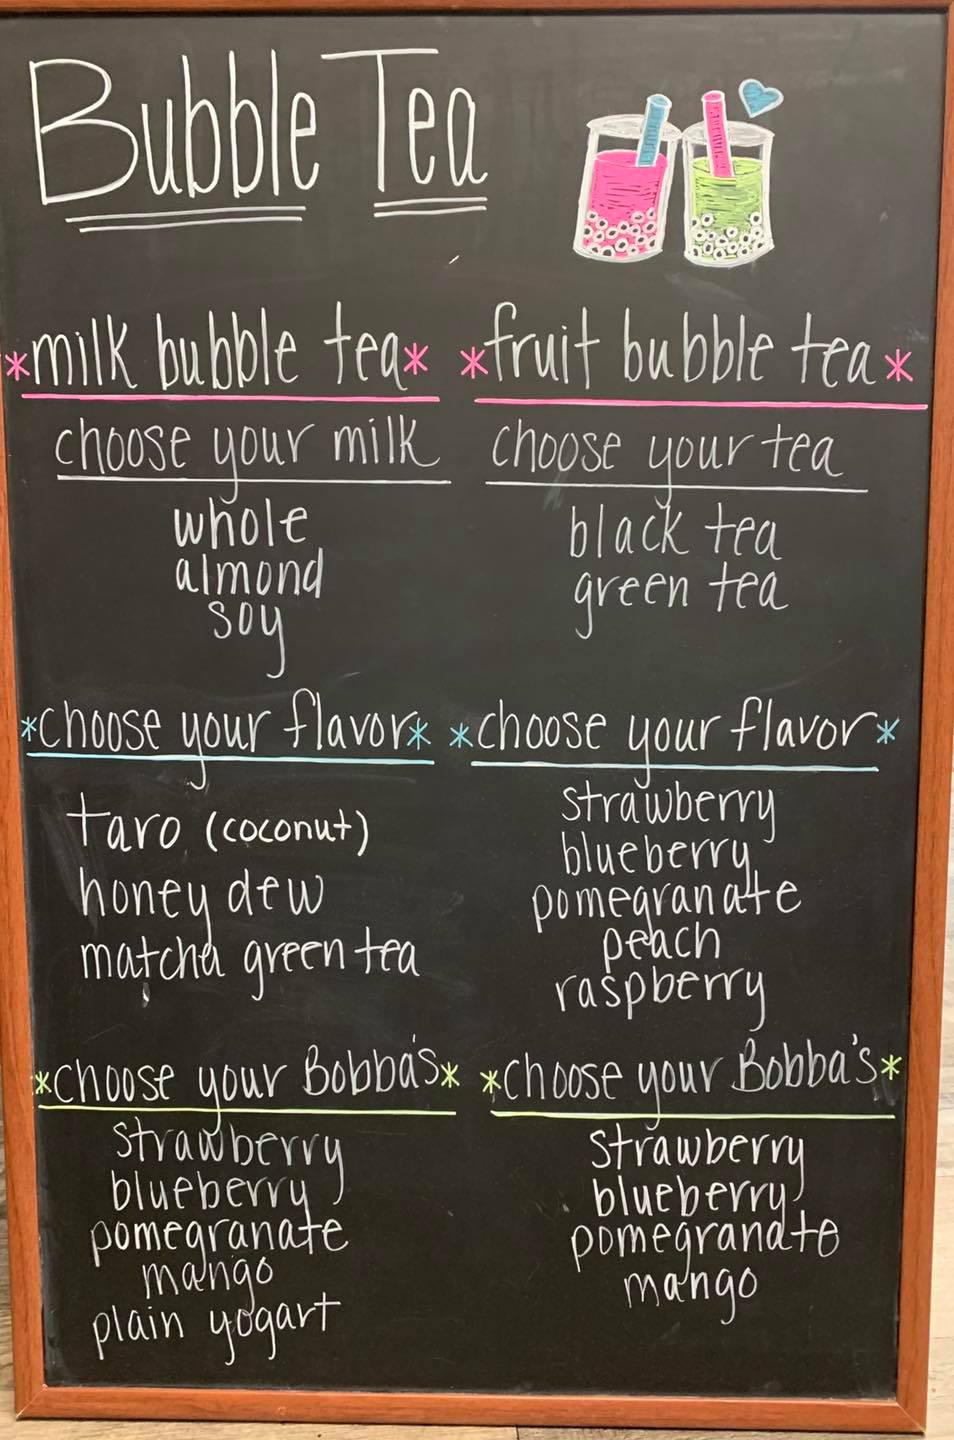 Bubble Tea
*milk bubble tea*
choose your milk
whole
almond
soy
*choose your flavor*
taro (coconut)
honey dew
matcha green tea
*choose your Bobba's*
strawberry
blueberry
pomegranate
mango
plain yogart
*fruit bubble tea*
choose your tea
black tea
green tea
*choose your flavor*
strawberry
blueberry
pomegranate
peach
raspberry
*choose your Bobba's*
strawberry
blueberry
pomegranate
mango